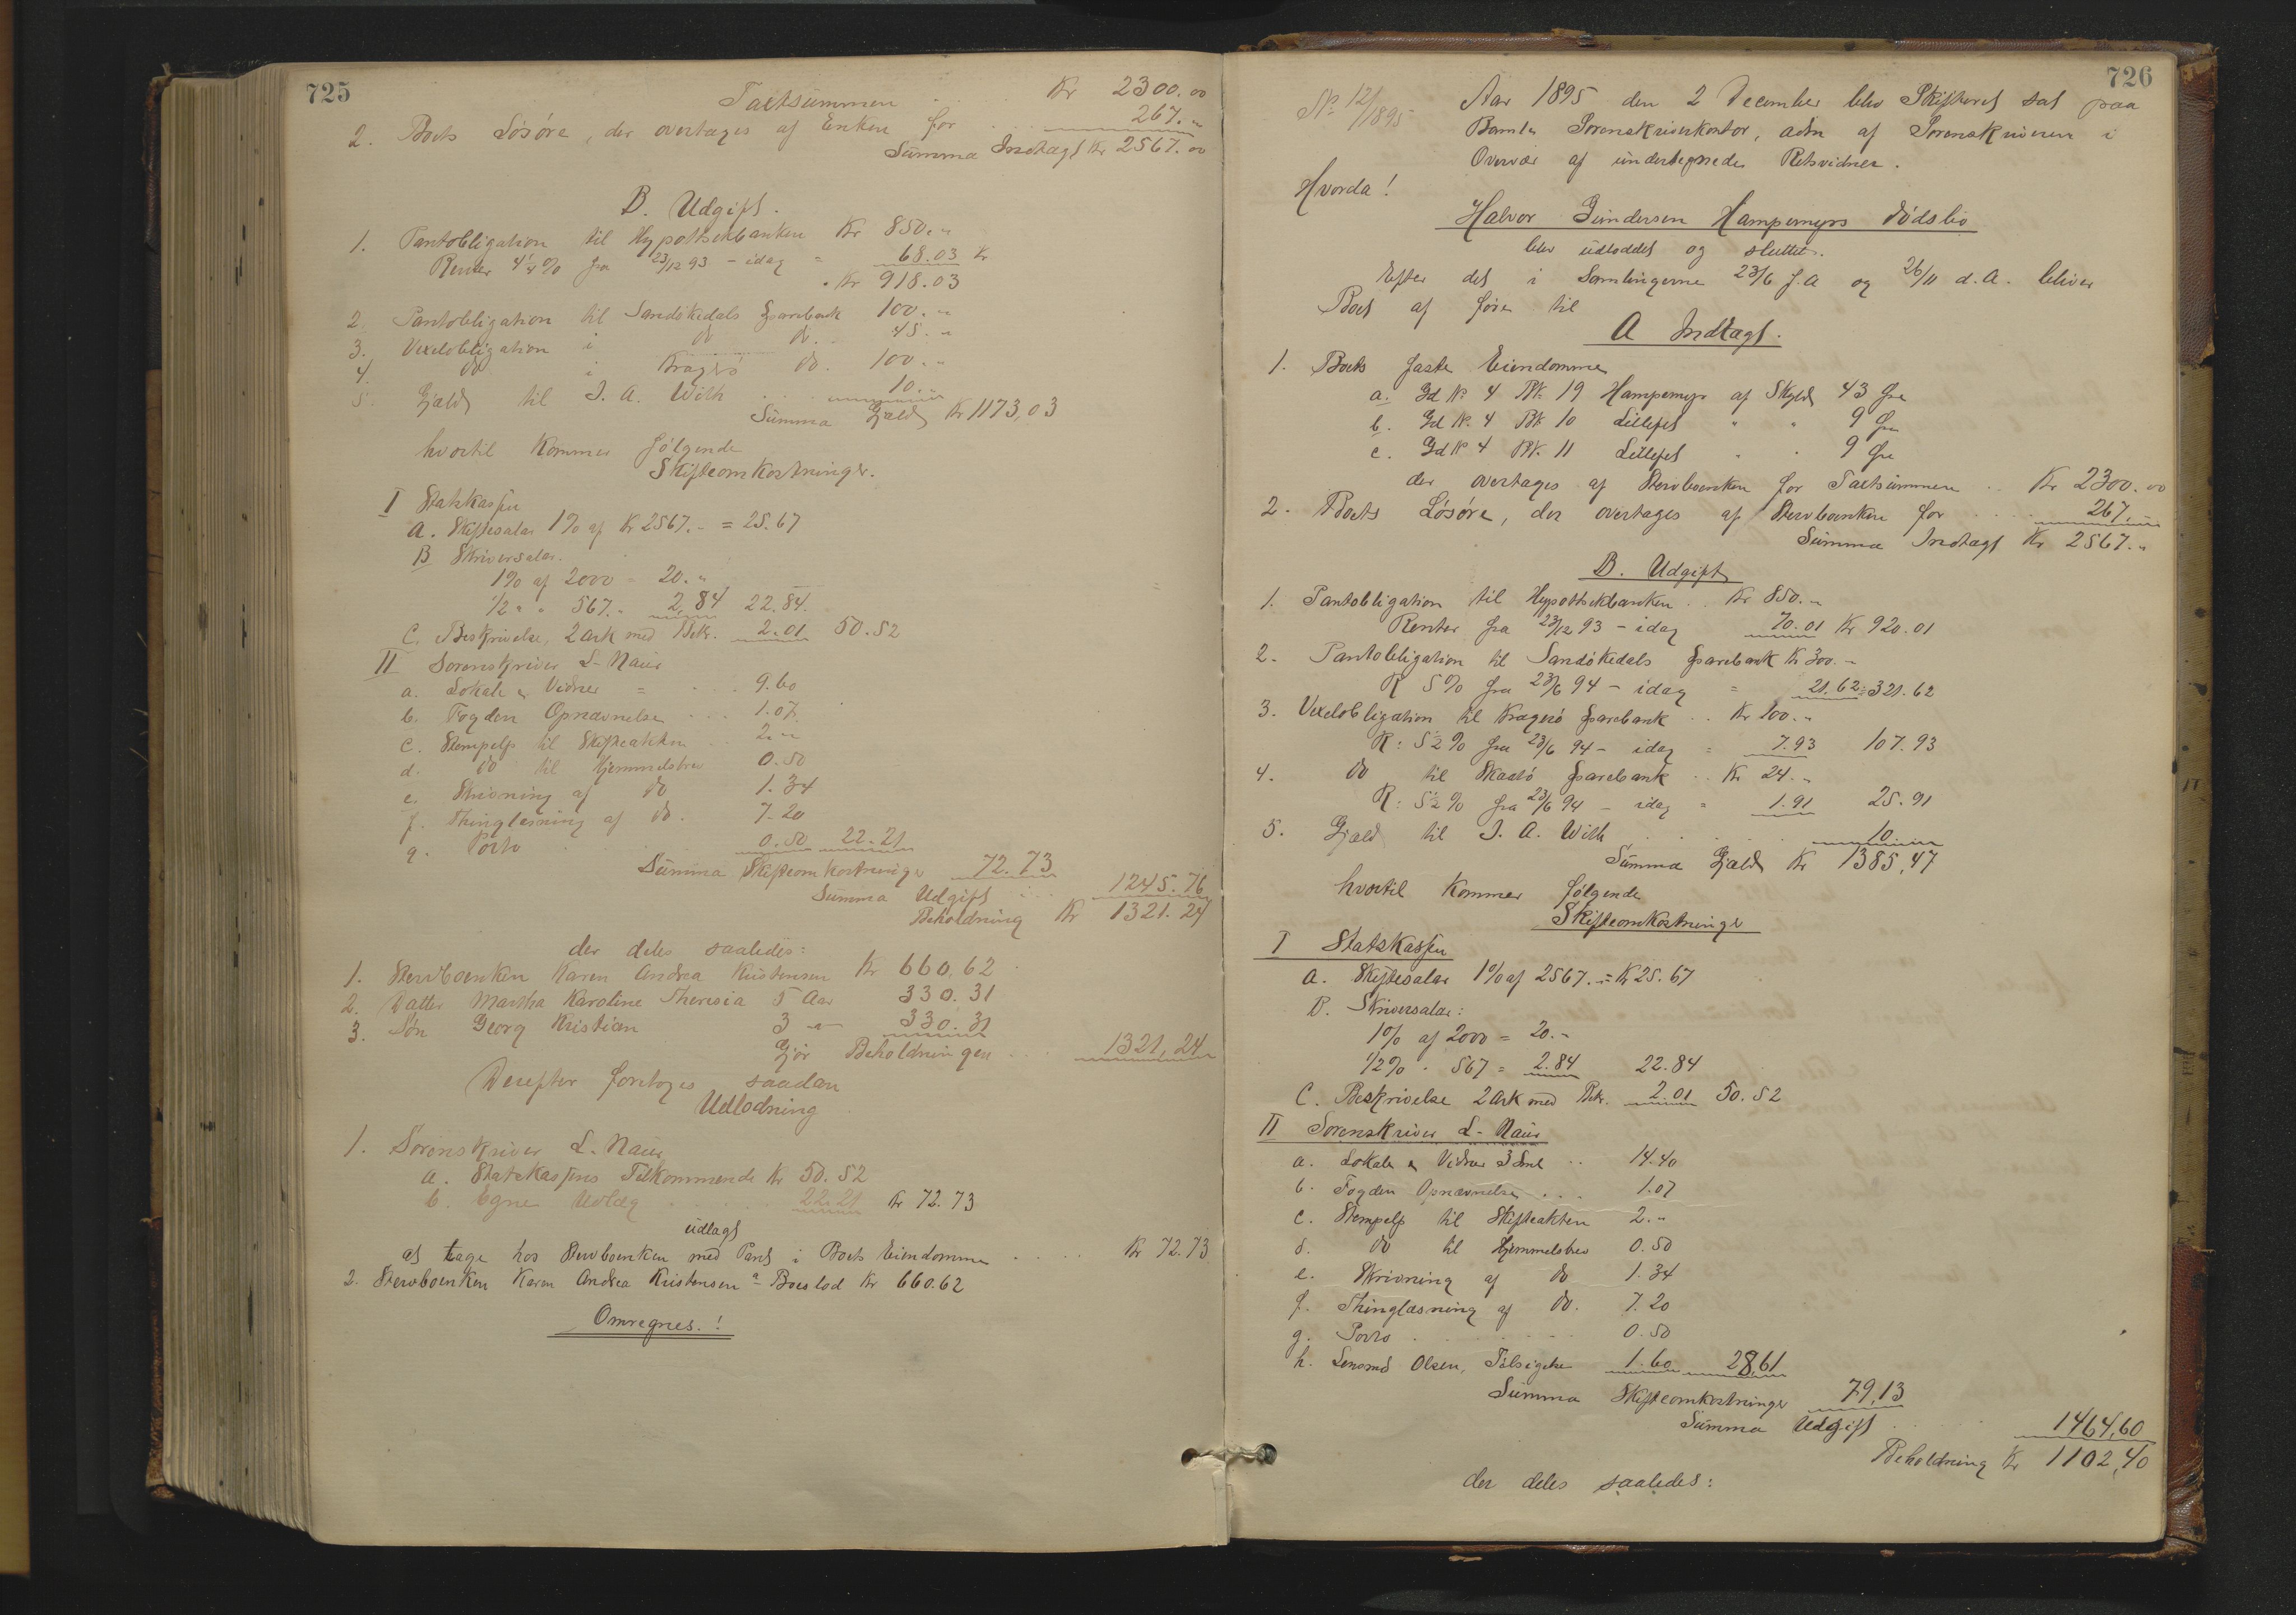 725
Taxtsummen . . . Kr 2300.00
2. Boets Løsøre, der overtages af Enken for . . 267.„
Summa Indtægt Kr 2567.00
B. Udgift.
1. Pantobligation til Hypothekbanken Kr 850.„
Renter 4 1/4 % fra 23/12 93 - idag = 68.03 Kr
Kr 918.03
2. Pantobligation til Sandøkedals Sparebank 100.„
3. Vexelobligation i do do. 45.„
4. do i Kragerø do. 100.„
5. Gjæld til J. A. With . . . 10.„
Summa Gjæld Kr 1173,03
hvortil kommer følgende
Skifteomkostninger.
I Statskassen
A. Skiftesalar 1% af Kr 2567.- = 25.67
B Skriversalar.
1% af 2000 = 20.„
1/2 „ „ 567.„ 2,84 22.84.
C. Beskrivelse, 2 Ark med Bekr. 2.01 50.52
II Sorenskriver L. Naur
a. Lokale & Vidner = . . 9.60
b. Fogden Opnævnelse . . . 1.07
c. Stempelp til Skifteakten . . 2.„
d. do til Hjemmelsbrev 0.50
e. Skrivning af do 1.34
f. Thinglæsning af do. 7.20
g. Porto . . . 0.50 22.21
Summa Skifteomkostninger 72.73
Summa Udgift . . . 1245.76
Beholdning Kr 1321.24
der deles saaledes:
1. Stervboenken Karen Andrea Kristensen Kr 660,62
2. Datter Martha Karoline Theresia 5 Aar 330.31
3. Søn Georg Kristian 3 -„- 330.31
Gjør Beholdningen . . . 1321,24
Derefter foretoges saadan
Udlodning
1. Sorenskriver L. Naur
a. Statskassens Tilkommende Kr 50.52
b. Egne Udlæg . . . 22.21 Kr 72.73
udlagt
at tage hos Stervboenken med Pant i Boets Eiendomme . . . Kr 72.73
2. Stervboenken Karen Andrea Kristensen a Boeslod Kr 660.62
Omregnes.!
726
No 12/1895
Aar 1895 den 2 December blev Skifteret sat paa
Bamle Sorenskriverkontor, adm af Sorenskriveren i
Overvær af undertegnede Retsvidner.
Hvorda!
Halvor Gundersen Hampemyrs Dødsbo
blev udloddet og sluttet.
Efter det i Samlingerne 23/6 f.A og 26/11 d.A. bliver
Boet at føre til
A Indtægt.
1. Boets faste Eiendomme
a. Gd No 4 Bk. 19 Hampemyr af Skyld 43 Øre
b. Gd No. 4 Bk 10 Lillejet „ „ 9 Øre
c. Gd No 4 Bk. 11 Lillejet „ „ 9 Øre
der overtages af Stervboenken for Taxtsummen . . Kr 2300.00
2. Boets Løsøre, der overtages af Stervboenken for . . . 267.-
Summa Indtægt Kr 2567.„
B. Udgift
1. Pantobligation til Hypothekbanken . . Kr 850.„
Renter fra 23/12 93 - idag 70.01 Kr 920.01
2. Pantobligation til Sandøkedals Sparebank Kr 300.-
R 5% fra 23/6 94 - idag = 21.62 = 321.62
3. Vexelobligation til Kragerø Sparebank . . Kr 100.„
R: 5 1/2 % fra 23/6 94 - idag = 7.93 107.93
4. do til Skaatø Sparebank . . Kr 24.„
R: 5 1/2 % fra 23/6 94 - idag = 1.91 25.91
5. Gjæld til J. A. With . . . 10.„
Summa Gjæld Kr 1385,47
hvortil kommer følgende
Skifteomkostninger
I Statskassen
A. Skiftesalar 1% af 2567. = Kr 25.67
B. Skriversalar:
1% af 2000 = 20.-
1/2% . 567 = 2.84 22.84
C. Beskrivelse 2 Ark med Bekr. 2.01 50.52
II Sorenskriver L. Naur
a. Lokale & Vidner 3 Saml . . 14.40
b. Fogden Opnævnelse . . . 1.07
c. Stempelp til Skifteakten 2.„
d. do til Hjemmelsbrev 0.50
e. Skrivning af do 1.34
f. Thinglæsning af do. 7.20
g. Porto . . . 0.50
h. Lensmd Olsen, Tilsigelse 1.60 28,61
Summa Skifteomkostninger 79,13
Summa Udgift . . . 1464,60
Beholdning Kr 1102,40
der deles saaledes: